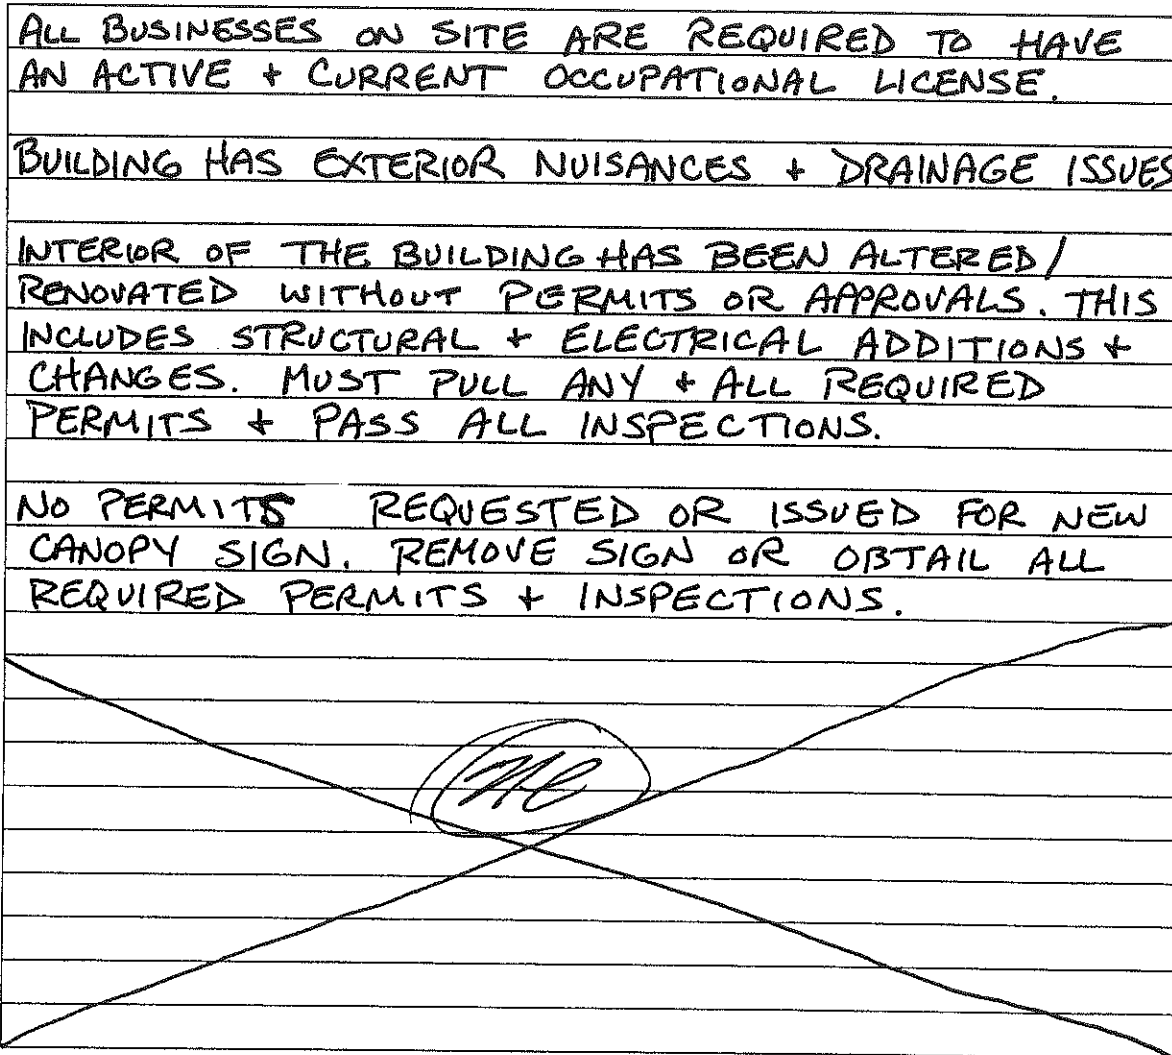 ALL BUSINESSES ON SITE ARE REQUIRED TO HAVE
AN ACTIVE + CURRENT OCCUPATIONAL LICENSE.
BUILDING HAS EXTERIOR NUISANCES + DRAINAGE ISSUES
INTERIOR OF THE BUILDING HAS BEEN ALTERED/
RENOVATED WITHOUT PERMITS OR APPROVALS. THIS
INCLUDES STRUCTURAL + ELECTRICAL ADDITIONS +
CHANGES. MUST PULL ANY + ALL REQUIRED
PERMITS + PASS ALL INSPECTIONS.
NO PERMITS REQUESTED OR ISSUED FOR NEW
CANOPY SIGN. REMOVE SIGN OR OBTAIL ALL
REQUIRED PERMITS + INSPECTIONS.